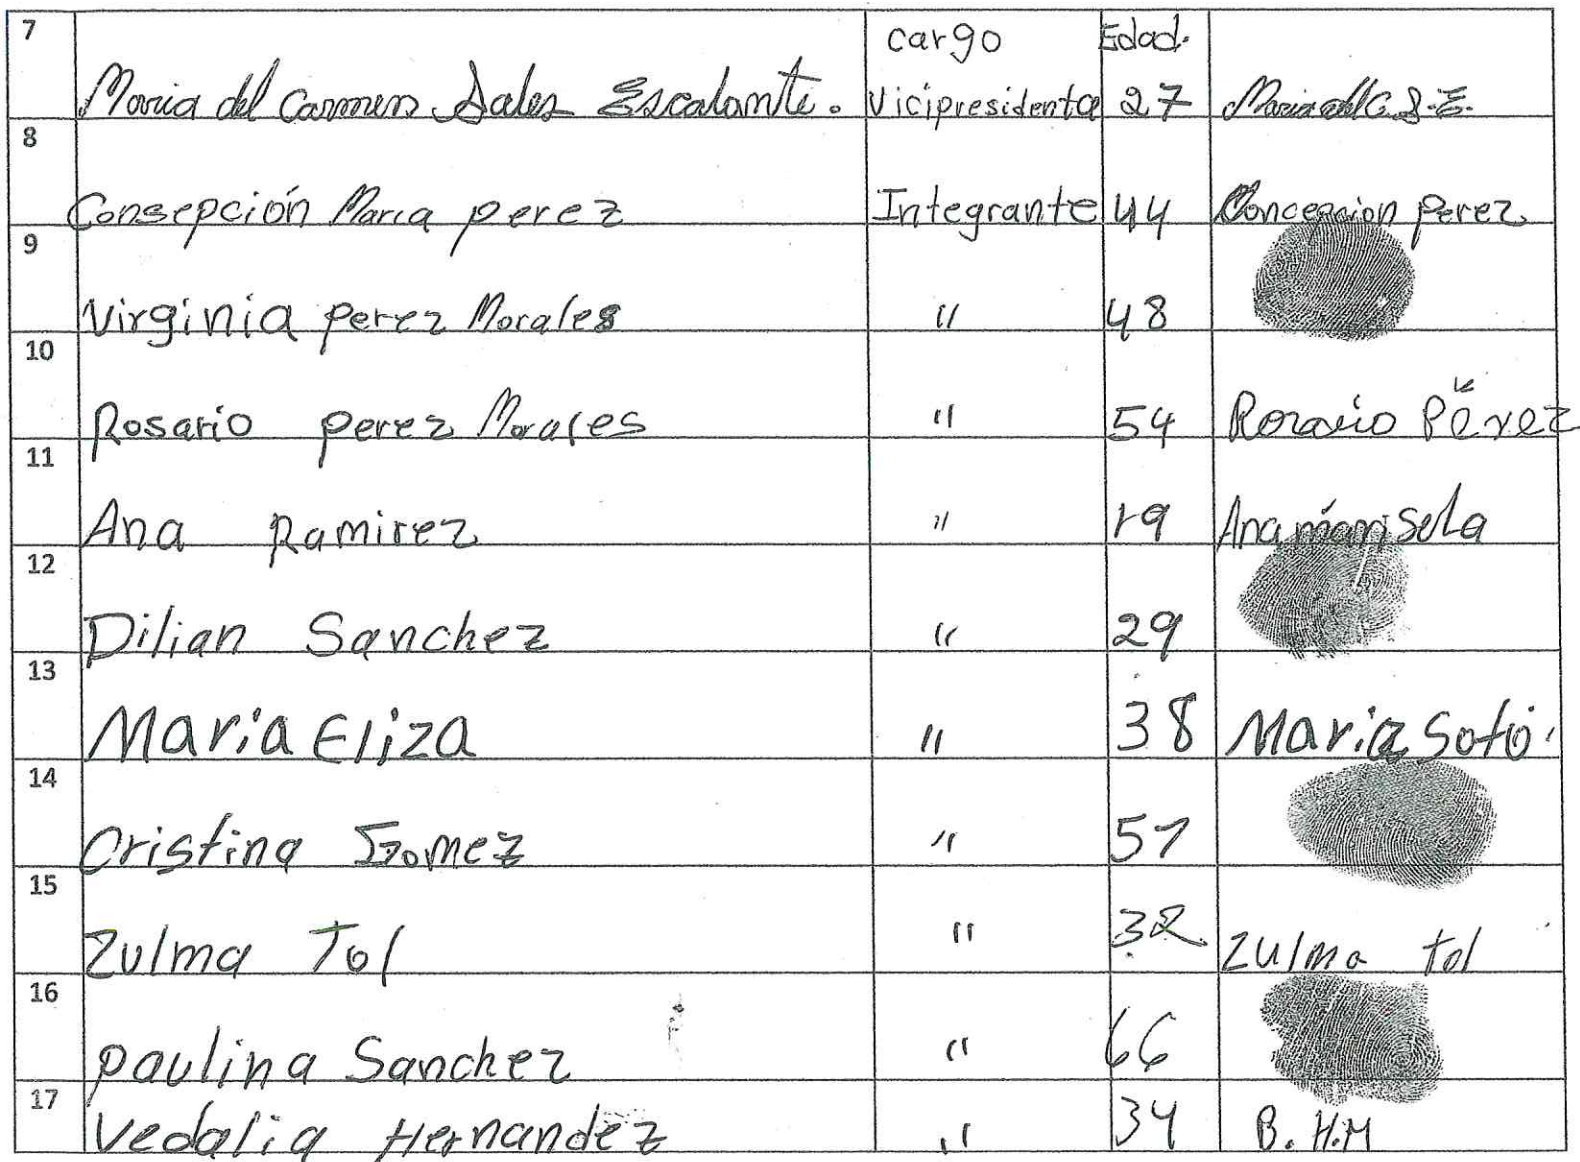 7 cargo Edad.
Maria del Carmen Sales Escalante. Vicipresidenta 27 Maria del C. S. E.
8
Consepción Maria perez Integrante 44 Concepcion Perez
9
Virginia perez Morales " 48
10
Rosario perez Morales " 54 Rosario Pérez
11
Ana Ramirez " 19 Ana marisela
12
Dilian Sanchez " 29
13
Maria Eliza " 38 Maria Soto
14
Cristina Gomez " 57
15
Zulma Tol " 32 Zulma tol
16
paulina Sanchez " 66
17
Vedalia Hernandez " 34 B. H.M